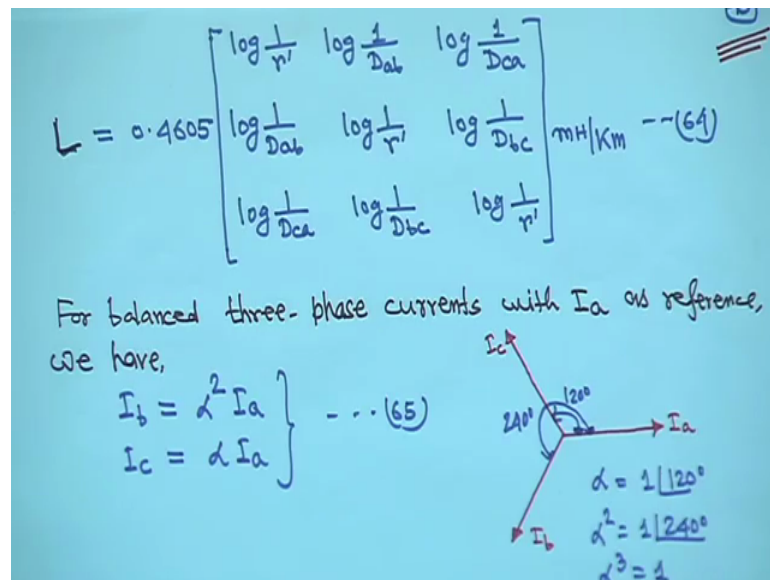 log 1/r' log 1/Dab log 1/Dca
L = 0.4605 log 1/Dab log 1/r' log 1/Dbc mH/Km --(64)
log 1/Dca log 1/Dbc log 1/r'
For balanced three-phase currents with Ia as reference,
we have,
Ib = α² Ia
Ic = α Ia } - - - (65)
Ic
120°
240°
Ia
Ib
α = 1∠120°
α² = 1∠240°
α³ = 1